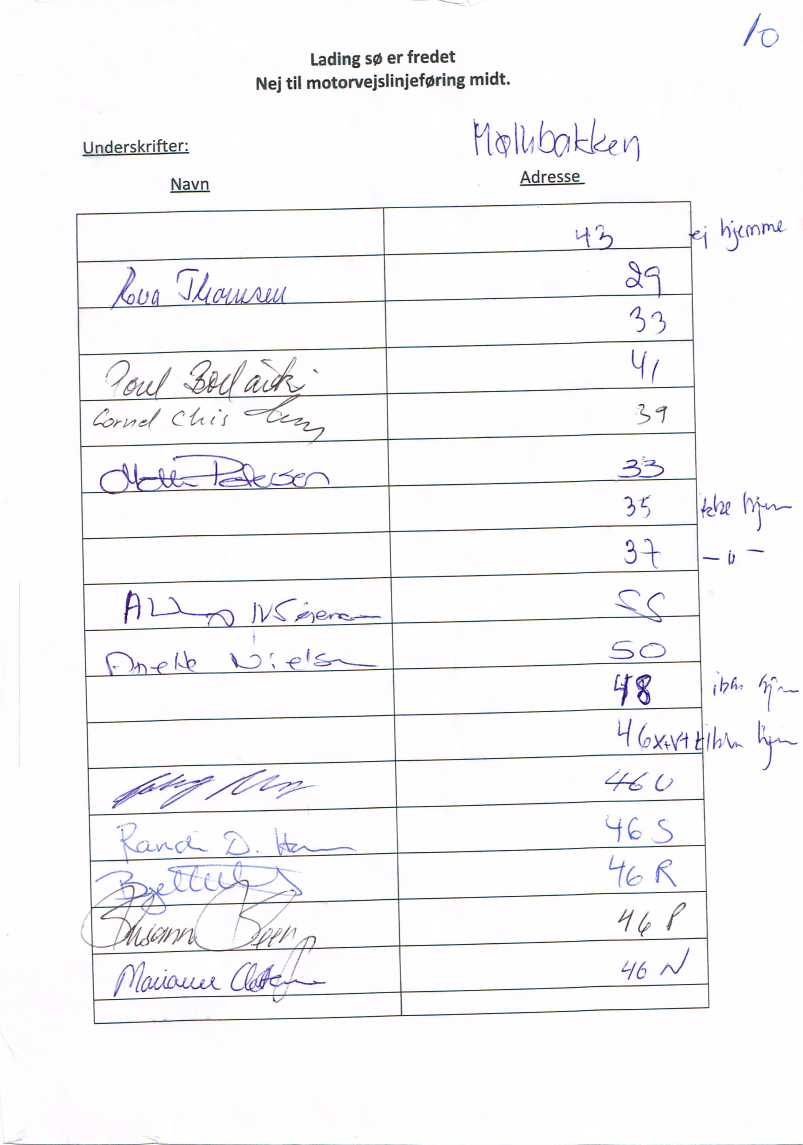 10
Lading sø er fredet
Nej til motorvejslinjeføring midt.
Underskrifter:
Møllebakken
Navn
Adresse
43 ej hjemme
Thomsen 29
33
Poul 41
Cornel Chis 39
Mette Petersen 33
35 ikke hjem
37 — " —
55
Anette Nielsen 50
48 ikke hjem
46 X+V+T ikke hjem
46 U
Randi D. 46 S
46 R
Susann 46 P
Marianne 46 N